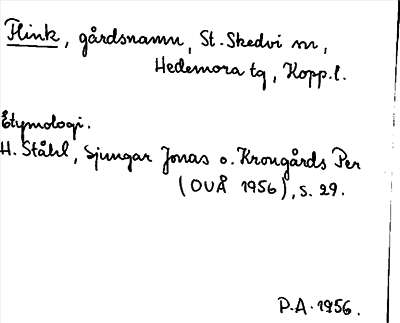 Flink, gårdsnamn, St. Skedvi sn,
Hedemora tg, Kopp.l.
Etymologi.
H. Ståhl, Sjungar Jonas o. Krongårds Per
(OUÅ 1956), s. 29.
P.A. 1956.